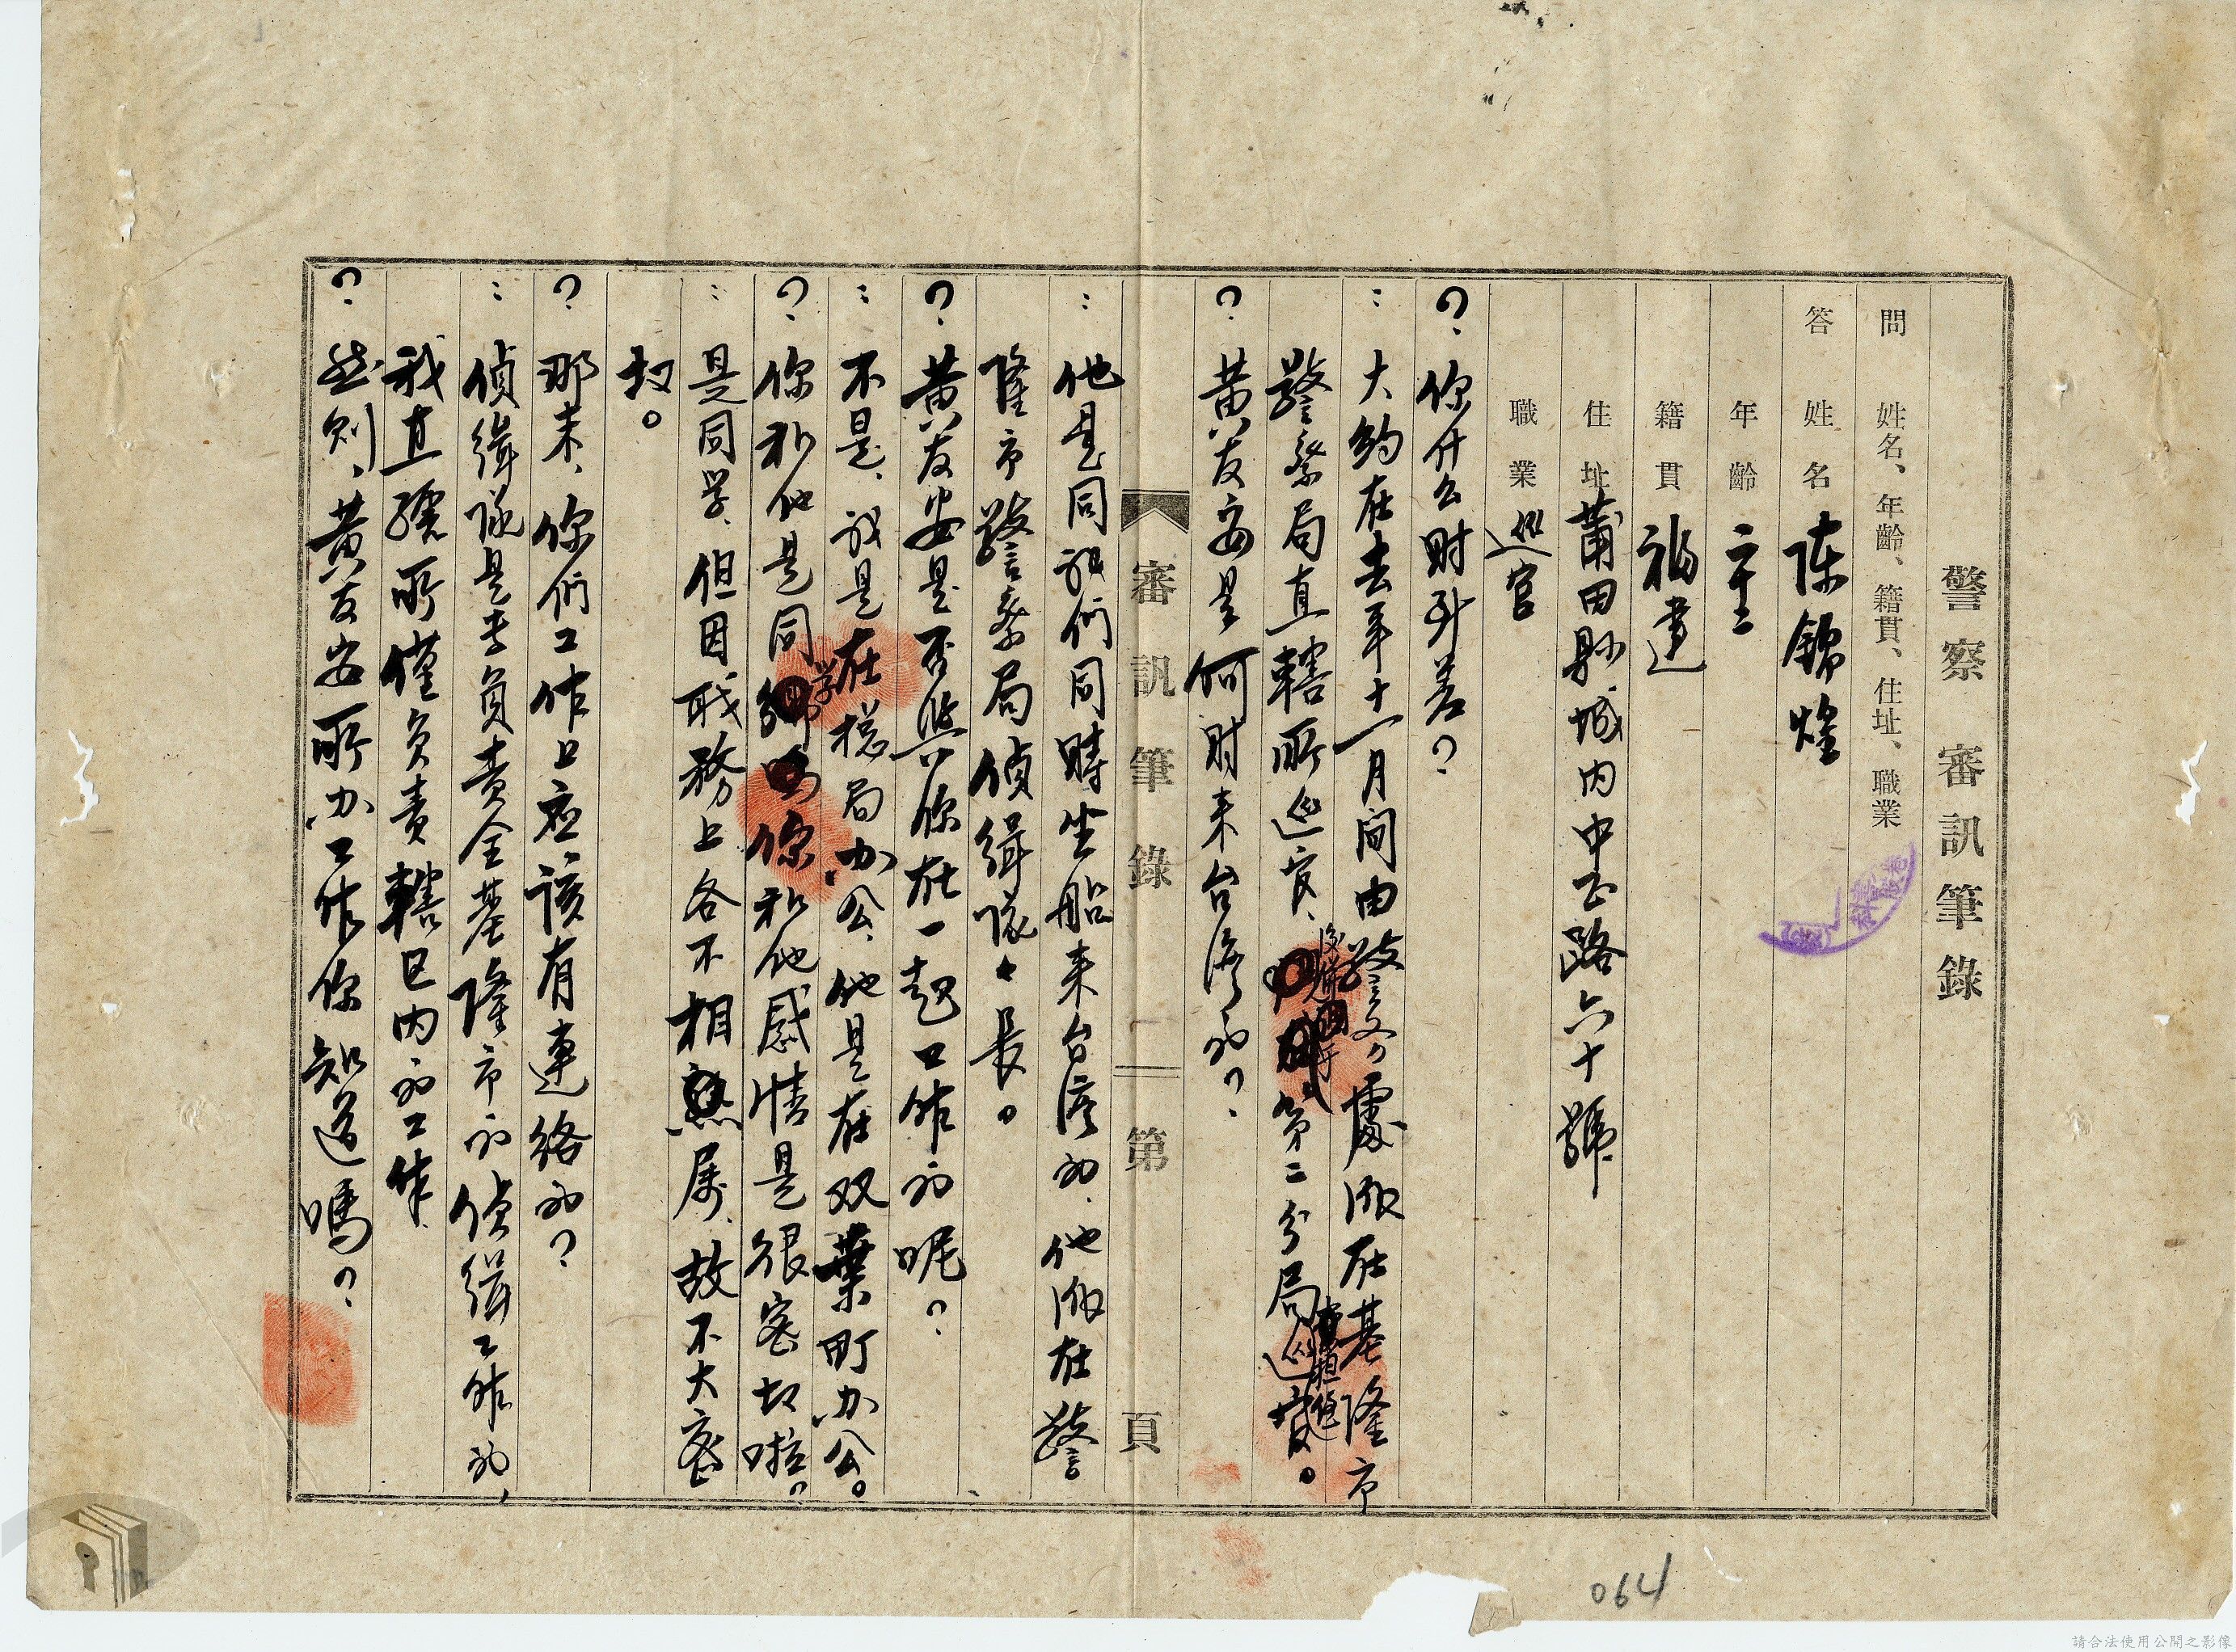 警察審訊筆錄
問 姓名、年齡、籍貫、住址、職業
答 姓名 陳錦煌
年齡 二十二
籍貫 福建
住址 莆田縣城內中正路六十號
職業 巡官
？你什么时到差？
：大約在去年十一月間由警 處派在基隆市
警察局直轄所巡官、 第二分局巡官。
？黃友安是何时来台湾的？
：他是同我們同時坐船来台湾的、他派在警
審訊筆錄 第 頁
隆市警察局偵緝隊 長。
？黃友安是否與你在一起工作的呢？
：不是、我是在總局办公、他是在双葉町办公。
？你和他是同学 你和他感情是很密切啦。
：是同学、但因职務上各不相 属、故不大密
切。
？那末、你們工作上应該有連絡的？
：偵緝隊是专负责全基隆市的偵緝工作的、
我直轄所僅负责轄区内的工作、
？然则、黃友安所办工作你知道嗎？
064
請合法使用公開之影像